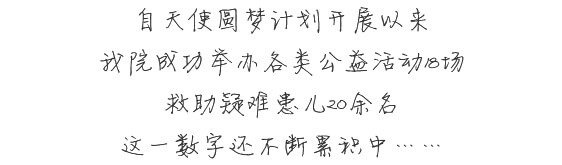 自天使圆梦计划开展以来
我院成功举办各类公益活动18场
救助疑难患儿20余名
这一数字还不断累积中……